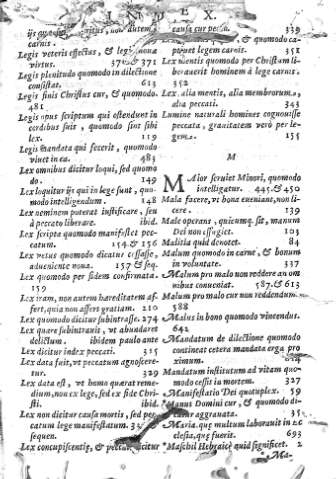 INDEX.
carnis.
Legis veteris effectus, & legis nouæ
virtus. 370 & 371
Legis plenitudo quomodo in dilectione
consistat. 613
Legis finis Christus cur, & quomodo.
481
Legis opus scriptum qui ostendunt in
cordibus suis, quomodo sint sibi
lex. 119
Legis mandata qui fecerit, quomodo
viuet in ea. 483
Lex omnibus dicitur loqui, sed quomo
do. 149
Lex loquitur ijs qui in lege sunt, quo-
modo intelligendum. 148
Lex neminem poterat iustificare, seu
à peccato liberare. ibid.
Lex scripta quomodo manifestet pec-
catum. 154. & 156
Lex vetus quomodo dicatur cessasse,
adueniente noua. 157 & seq.
Lex quomodo per fidem confirmata.
159
Lex iram, non autem hæreditatem af-
fert, quia non assert gratiam. 210
Lex quomodo dicitur subintrasse. 274
Lex quare subintrauit, vt abundaret
delictum. ibidem paulo ante
Lex dicitur index peccati. 315
Lex data fuit, vt peccatum agnoscere-
tur. 329
Lex data est, vt homo quærat reme-
dium, non ex lege, sed ex fide Chri-
sti. ibid.
Lex non dicitur causa mortis, sed pec-
catum lege manifestatum.
sequen.
Lex concupiscentiæ, & peccati, dicitur
causa cur 339
& quomodo ca-
legem carnis. 351
Lex mentis quomodo per Christum li-
berauerit hominem à lege carnis.
352
Lex alia mentis, alia membrorum,
alia peccati. 343
Lumine naturali homines cognouisse
peccata, grauitatem vero per le-
gem. 155
M
MAior seruiet Minori, quomodo
intelligatur. 445 & 450
Mala facere, vt bona eueniant, non li-
cere. 139
Male operans, quicumque sit, manum
Dei non effugiet. 103
Malitia quid denotet. 84
Malum quomodo in carne, & bonum
in voluntate. 337
Malum pro malo non reddere an om
nibus conueniat. 587. & 613
Malum pro malo cur non reddendum.
588
Malus in bono quomodo vincendus.
642
Mandatum de dilectione quomodo
continet cetera mandata erga pro
ximum. 224
Mandatum institutum ad vitam quo-
modo cessit in mortem. 327
Manifestatio Dei quotuplex. 59
Manus Domini cur, & quomodo di-
catur aggrauata. 35
Maria, quæ multum laborauit in ec
clesia, quæ fuerit. 693
Maschil Hebraicè quid significet. 2
Ma-